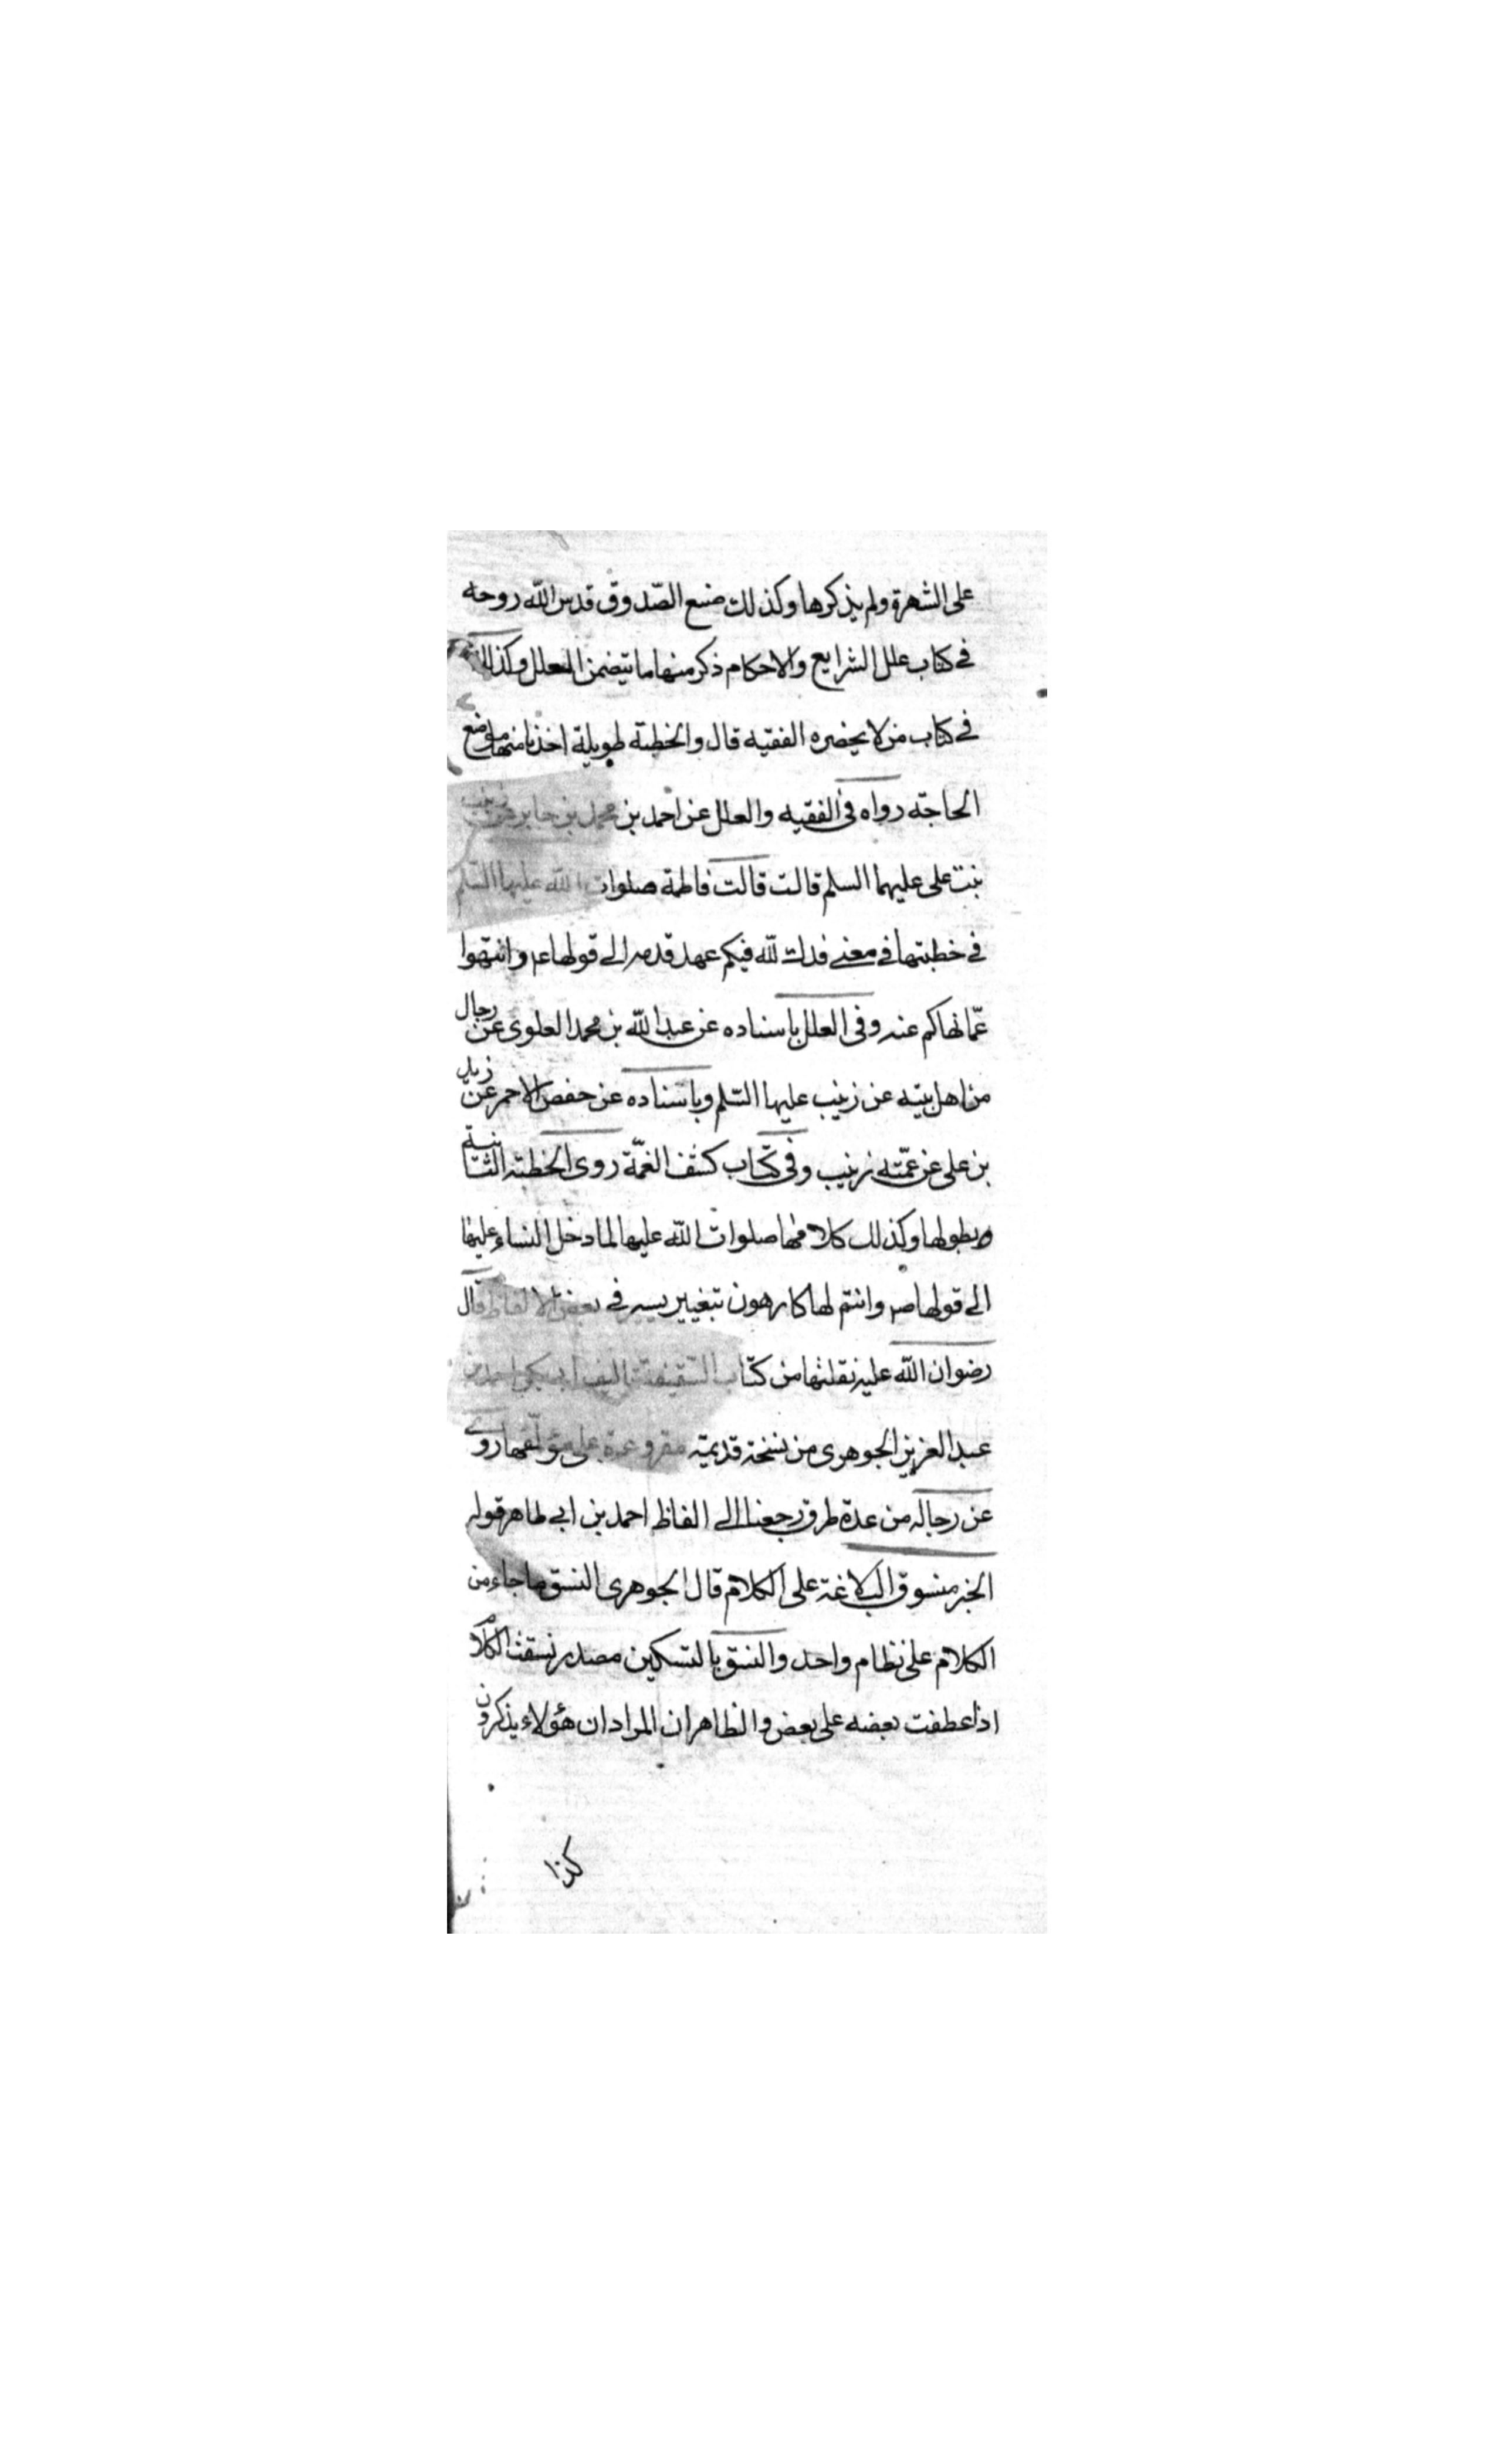 على الشهرة ولم يذكرها وكذلك صنع الصّدوق قدس اللّه روحه
في كتاب علل الشرايع والاحكام ذكر منها ما يتضمن العلل وكذلك
في كتاب من لا يحضره الفقيه قال والخطبة طويلة اخذنا منها موضع
الحاجة رواه فى الفقيه والعلل عن احمد بن محمد بن جابر عن زينب
بنت على عليهما السلم قالت قالت فاطمة صلوات اللّه عليها السّلم
في خطبتها في معنى فدك للّه فيكم عهد قدمه الى قولها ع م وانتهوا
عمّا نهاكم عنه وفى العلل باسناده عن عبد اللّه بن محمد العلوى عن رجال
من اهل بيته عن زينب عليها السّلم وباسناده عن حفص الاحمر عن زيد
بن على عن عمّته زينب وفى كتاب كشف الغمّة روى الخطبة الثانية
وبطولها وكذلك كلامها صلوات اللّه عليها لما دخل النساء عليها
الى قولها ص وانتم لها كارهون بتغيير يسير في بعض الالفاظ قال
رضوان اللّه عليه نقلتها من كتاب السّقيفة تاليف ابى بكر احمد بن
عبد العزيز الجوهرى من نسخة قديمة مقروءة على مؤلّفها روى
عن رجاله من عدة طرق رجعنا الى الفاظ احمد بن ابي طاهر قوله
الخبر منسوق البلاغة على الكلام قال الجوهرى النسق ما جاء من
الكلام على نظام واحد والنسق بالتسكين مصدر نسقت الكلام
اذا عطفت بعضه على بعض والظاهر ان المراد ان هؤلاء يذكرون
كذا